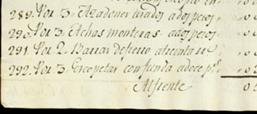 289. Por 3. Azadones usados a dos pesos
290. Por 3. Achas monteras a dos pesos
291. Por 2. Barras de fierro a treinta
292. Por 3. Escopetas con funda a doce p.s
Al frente